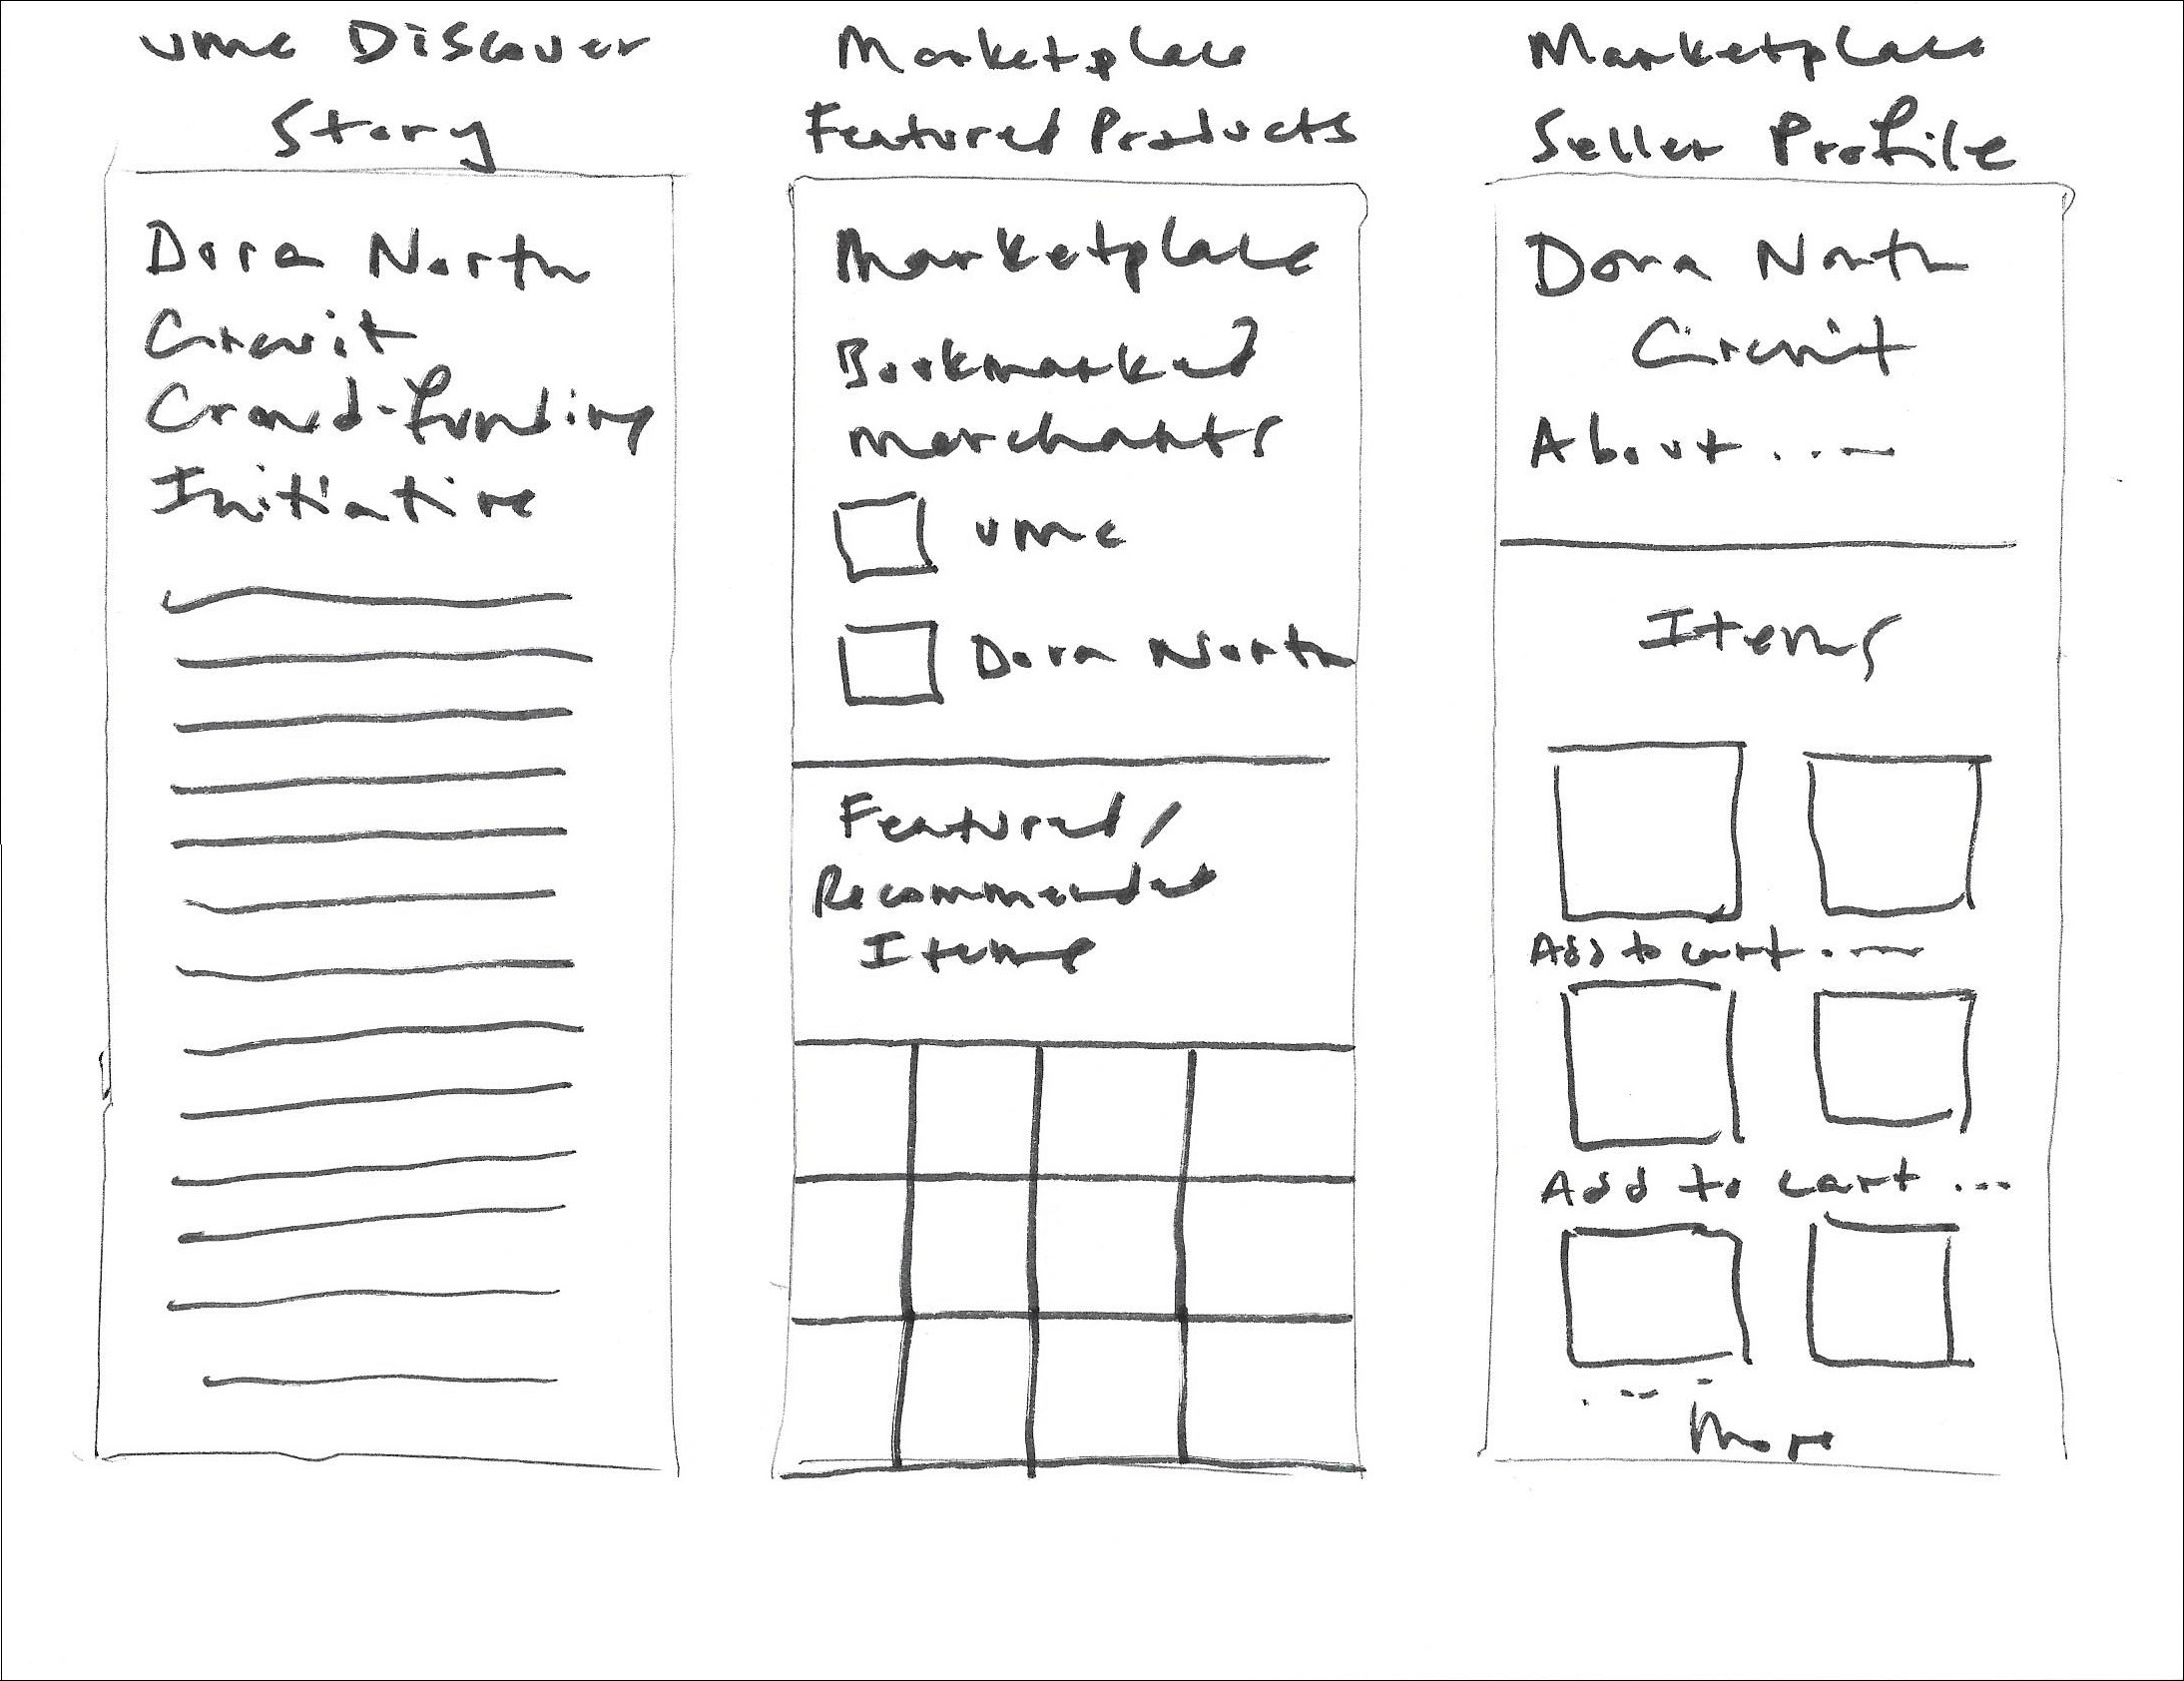 vme Discover
Story
Dora North
Circuit
Crowd-funding
Initiative
Marketplace
Featured Products
Marketplace
Bookmarked
Merchants
vme
Dora North
Featured/
Recommended
Items
Marketplace
Seller Profile
Dora North
Circuit
About...
Items
Add to cart...
Add to cart...
More